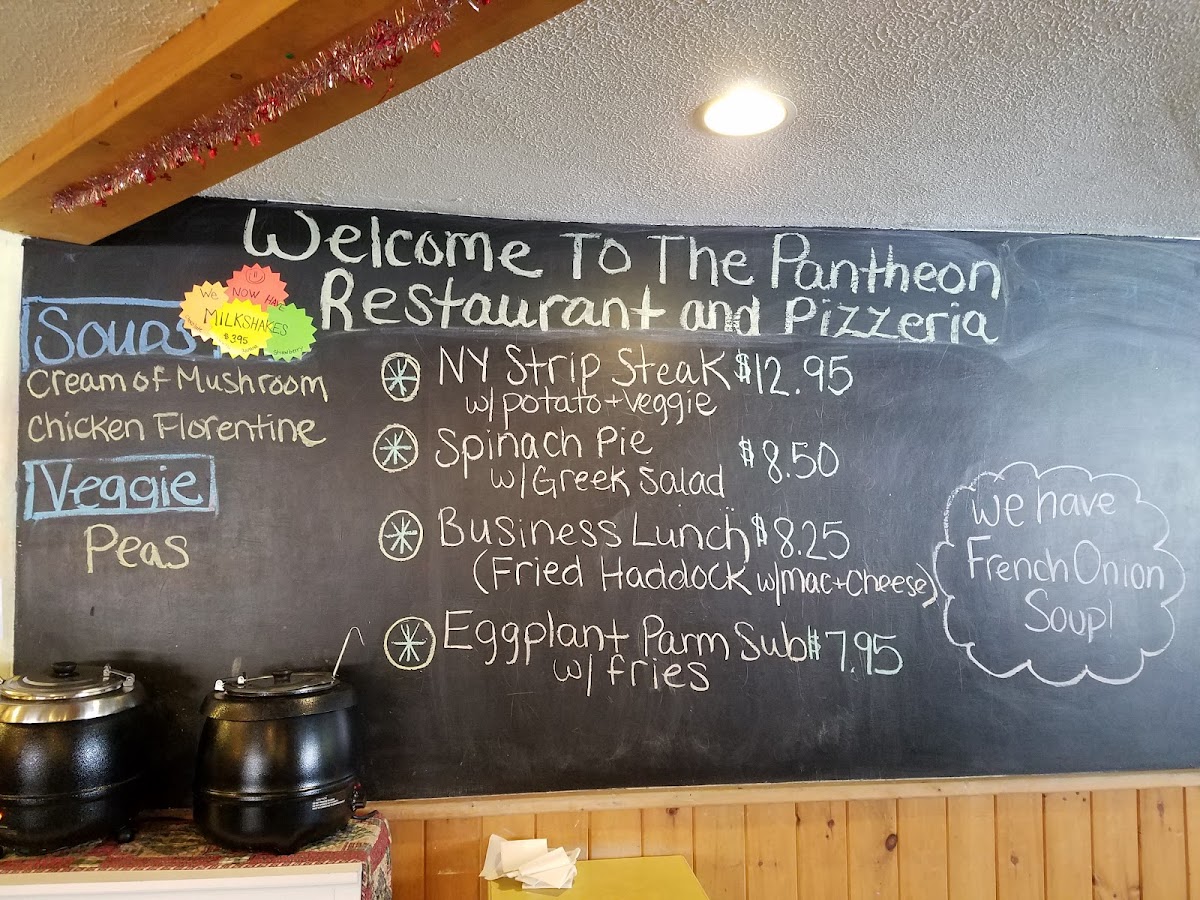 Welcome To The Pantheon
Restaurant and Pizzeria
We NOW HAVE
MILKSHAKES
$3.95
Strawberry
Soups
Cream of Mushroom
Chicken Florentine
Veggie
Peas
NY Strip Steak $12.95
w/ potato + veggie
Spinach Pie $8.50
w/ Greek Salad
Business Lunch $8.25
(Fried Haddock w/mac + cheese)
Eggplant Parm Sub $7.95
w/ fries
We have
French Onion
Soup!